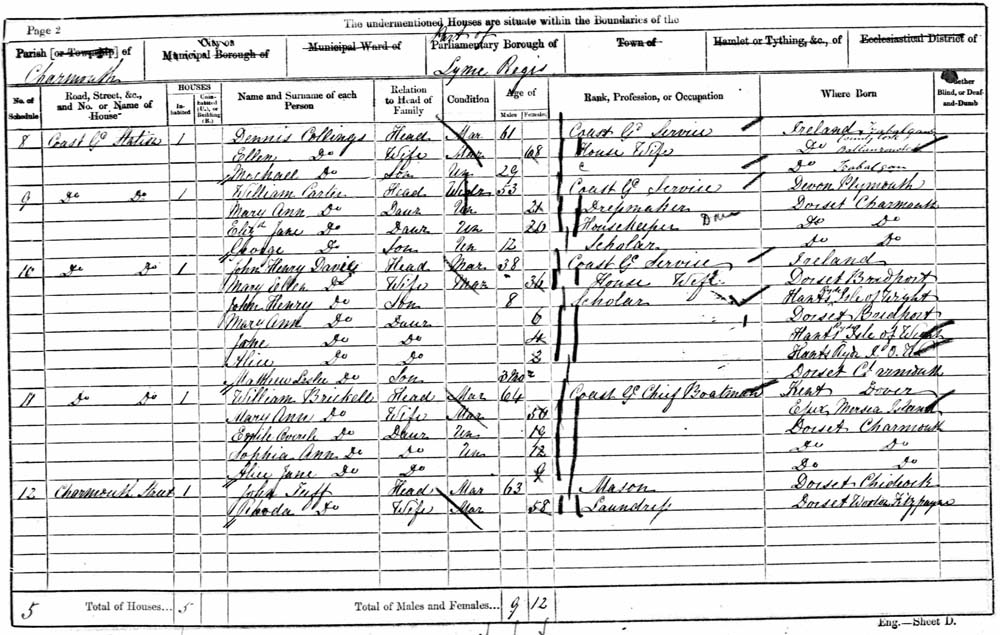 Page 2
The undermentioned Houses are situate within the Boundaries of the
Parish [or Township] of City or Municipal Borough of Municipal Ward of Part of Parliamentary Borough of Town of Hamlet or Tything, &c., of Ecclesiastical District of
Charmouth Lyme Regis
No. of Schedule Road, Street, &c., and No. or Name of House HOUSES In-habited Name and Surname of each Person Relation to Head of Family Condition Age of Males Females Rank, Profession, or Occupation Where Born Whether Blind, or Deaf-and-Dumb
8 Coast Gd Station 1 Dennis Collings Head Mar 61 Coast Gd Service Ireland
Ellen Do Wife Mar 68 House Wife Do
Michael Do Son Un 29 Do
9 Do Do 1 William Carter Head Widr 53 Coast Gd Service Devon Plymouth
Mary Ann Do Daur Un 24 Dressmaker Dorset Charmouth
Elizth Jane Do Daur Un 20 Housekeeper Do Do
George Do Son Un 12 Scholar Do Do
10 Do Do 1 John Henry Davies Head Mar 38 Coast Gd Service Ireland
Mary Ellen Do Wife Mar 36 House Wife Dorset Bridport
John Henry Do Son 8 Scholar Hants Isle of Wight
Mary Ann Do Daur 6 Dorset Bridport
Jane Do Do 4 Hants Isle of Wight
Alice Do Do 2 Hants Ryde I. O. W
Matthew Leslie Do Son 3 Mo Dorset Charmouth
11 Do Do 1 William Brickell Head Mar 64 Coast Gd Chief Boatman Kent Dover
Mary Ann Do Wife Mar 56 Essex Mersea Island
Do Daur Un 19 Dorset Charmouth
Sophia Ann Do Do Un 12 Do Do
Alice Jane Do Do 9 Do Do
12 Charmouth Street 1 John Tuff Head Mar 63 Mason Dorset Chidiock
Rhoda Do Wife Mar 58 Laundress Dorset Wootton Fitzpayne
5 Total of Houses... 5 Total of Males and Females... 9 12
Eng.—Sheet D.